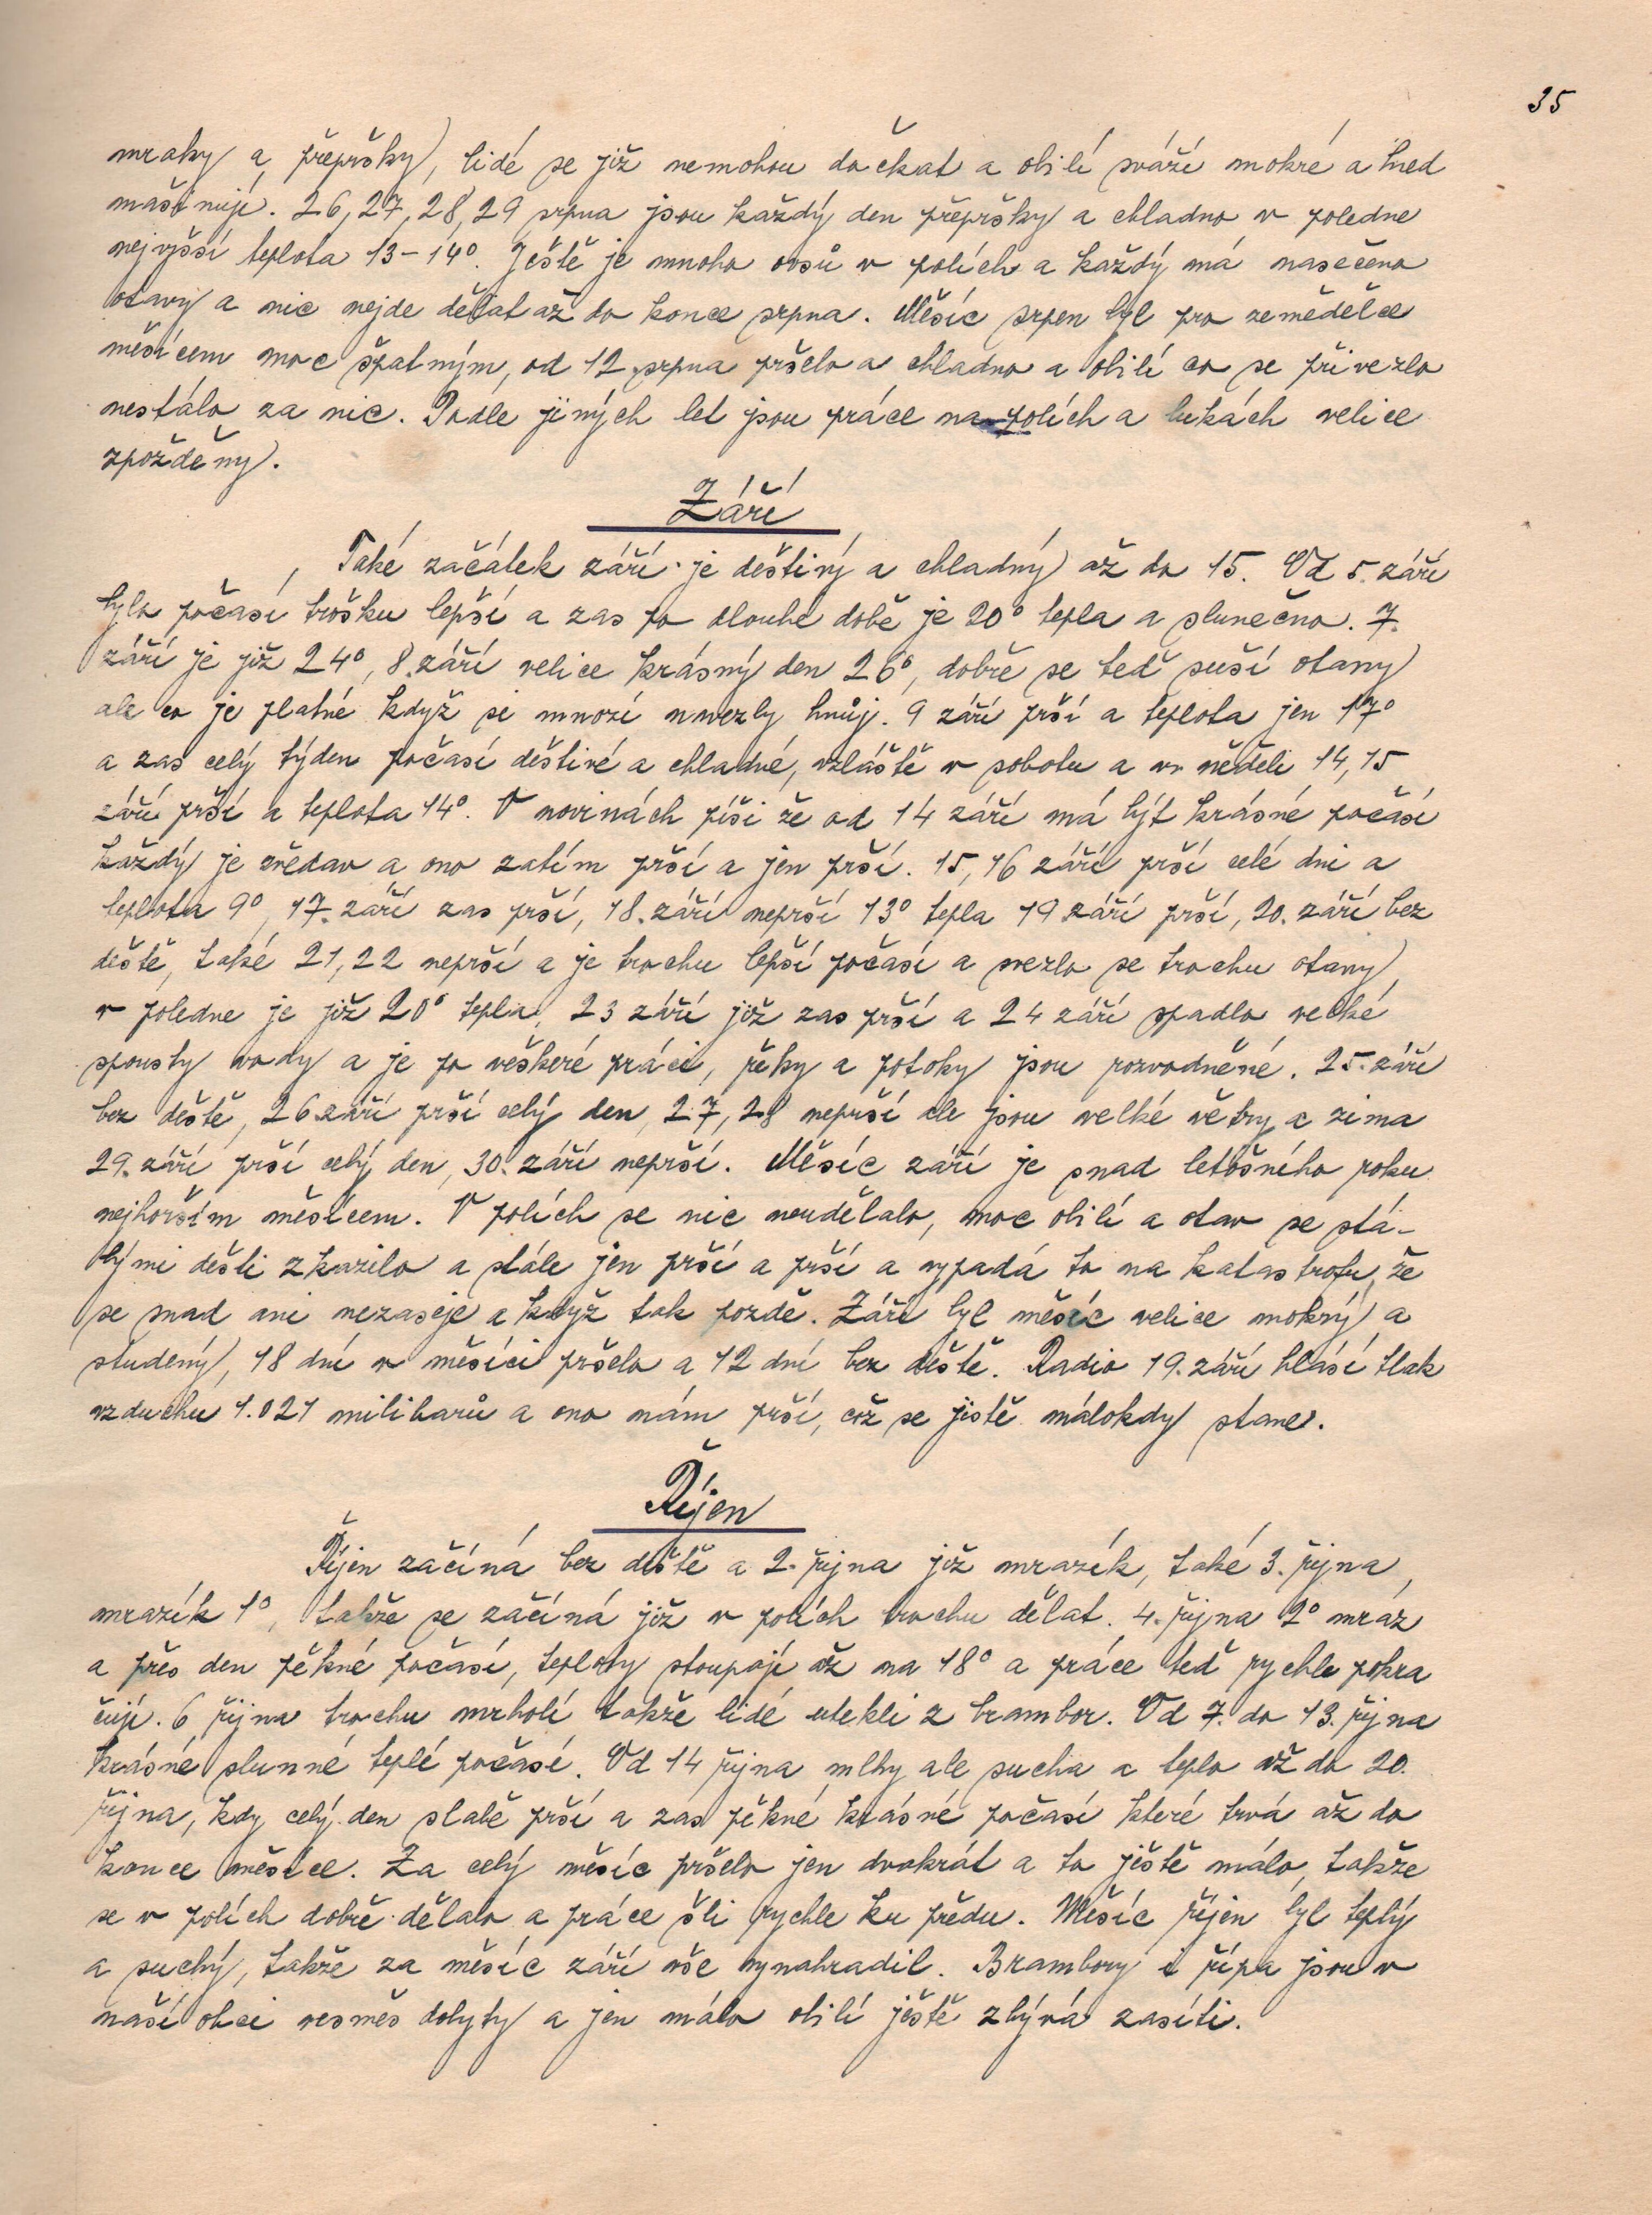 35
mraky a přepršky, lidé se již nemohou dočkat a obilí sváží mokré a hned
mašinují. 26, 27, 28, 29 srpna jsou každý den přepršky a chladno v poledne
nejvyšší teplota 13-14°. Ještě je mnoho ovsů v polích a každý má nasečeno
otavy a nic nejde dělat až do konce srpna. Měsíc srpen byl pro zemědělce
měsícem moc špatným, od 12 srpna pršelo a chladno a obilí co se přivezlo
nestálo za nic. Podle jiných let jsou práce na polích a lukách velice
zpožděny.
Září
Také začátek září je deštivý a chladný až do 15. Od 5. září
bylo počasí trošku lepší a zas po dlouhé době je 20° tepla a slunečno. 7.
září je již 24°, 8. září velice krásný den 26°, dobře se teď suší otavy
ale co je platné když si mnozí navezly hnůj. 9 září prší a teplota jen 17°
a zas celý týden počasí deštivé a chladné, zvláště v sobotu a v neděli 14, 15
září prší a teplota 14°. V novinách píší že od 14 září má být krásné počasí
každý je zvědav a ono zatím prší a jen prší. 15, 16 září prší celé dni a
teplota 9°, 17. září zas prší, 18. září neprší 13° tepla 19 září prší, 20. září bez
deště, také 21, 22 neprší a je trochu lepší počasí a svezlo se trochu otavy,
v poledne je již 20° tepla, 23 září již zas prší a 24 září spadlo velké
spousty vody a je po veškeré práci, řeky a potoky jsou rozvodněné. 25. září
bez deště, 26 září prší celý den, 27, 28 neprší ale jsou velké větry a zima
29. září prší celý den, 30. září neprší. Měsíc září je snad letošního roku
nejhorším měsícem. V polích se nic neudělalo, moc obilí a otav se stá-
lými dešti zkazilo a stále jen prší a prší a vypadá to na katastrofu, že
se snad ani nezaseje a když tak pozdě. Září byl měsíc velice mokrý a
studený, 18 dní v měsíci pršelo a 12 dní bez deště. Radio 19. září hlásí tlak
vzduchu 1.021 milibarů a ono nám prší, což se jistě málokdy stane.
Říjen
Říjen začíná bez deště a 2. října již mrazík, také 3. října
mrazík 1°, takže se začíná již v polích trochu dělat. 4. října 2° mráz
a přes den pěkné počasí, teploty stoupají až na 18° a práce teď rychle pokra
čují. 6 října trochu mrholí takže lidé utekli z brambor. Od 7. do 13. října
krásné slunné teplé počasí. Od 14 října mlhy ale sucho a teplo až do 20.
října, kdy celý den slabě prší a zas pěkné krásné počasí které trvá až do
konce měsíce. Za celý měsíc pršelo jen dvakrát a to ještě málo, takže
se v polích dobře dělalo a práce šli rychle ku předu. Měsíc říjen byl teplý
a suchý, takže za měsíc září vše vynahradil. Brambory i řípa jsou v
naší obci vesměs dobyty a jen málo obilí ještě zbývá zasíti.